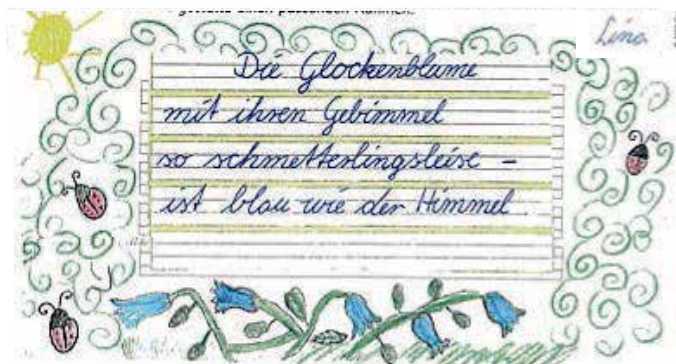 Lina
Die Glockenblume
mit ihren Gebimmel
so schmetterlingsleise –
ist blau wie der Himmel.